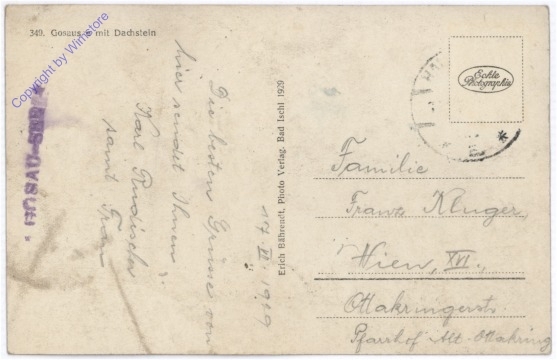 349. Gosausee mit Dachstein
Copyright by Winstore
GOSAU-SEE
Die besten Grüsse von
hier sendet Ihnen
Karl
samt Frau
17. 1919
Erich Bährendt, Photo Verlag. Bad Ischl 1929
Echte
Photographie
Familie
Franz Kluger,
Wien, XVI.,
Ottakringerstr.
Pfarrhof Alt-Ottakring